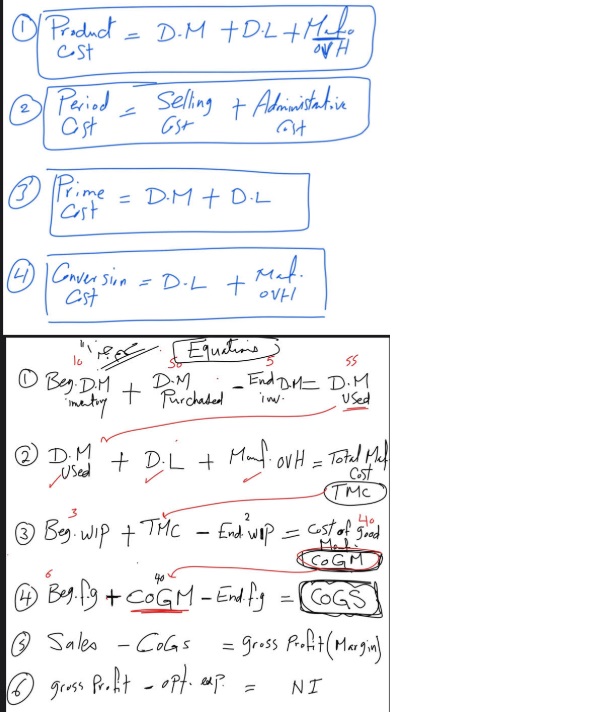 ① Product Cost = D.M + D.L + Manfo OVH
② Period Cost = Selling Cost + Administrative Cost
③ Prime Cost = D.M + D.L
④ Conversion Cost = D.L + Manf. OVH
Equations
10 50 5 55
① Beg. D.M inventory + D.M Purchased - End D.M inv. = D.M Used
② D.M Used + D.L + Manf. OVH = Total Maf Cost
TMC
3 2 40
③ Beg. WIP + TMC - End WIP = Cost of good Manf.
CoGM
6 40
④ Beg. f.g + CoGM - End. f.g = COGS
⑤ Sales - CoGs = gross Profit (Margin)
⑥ gross Profit - opt. exp. = NI